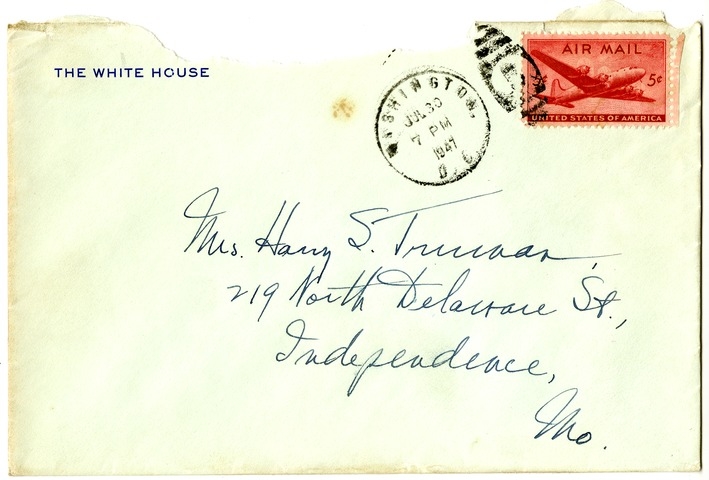 THE WHITE HOUSE
WASHINGTON, D.C.
JUL 30
7 PM
1947
AIR MAIL
5¢
UNITED STATES OF AMERICA
Mrs. Harry S. Truman,
219 North Delaware St.,
Independence,
Mo.